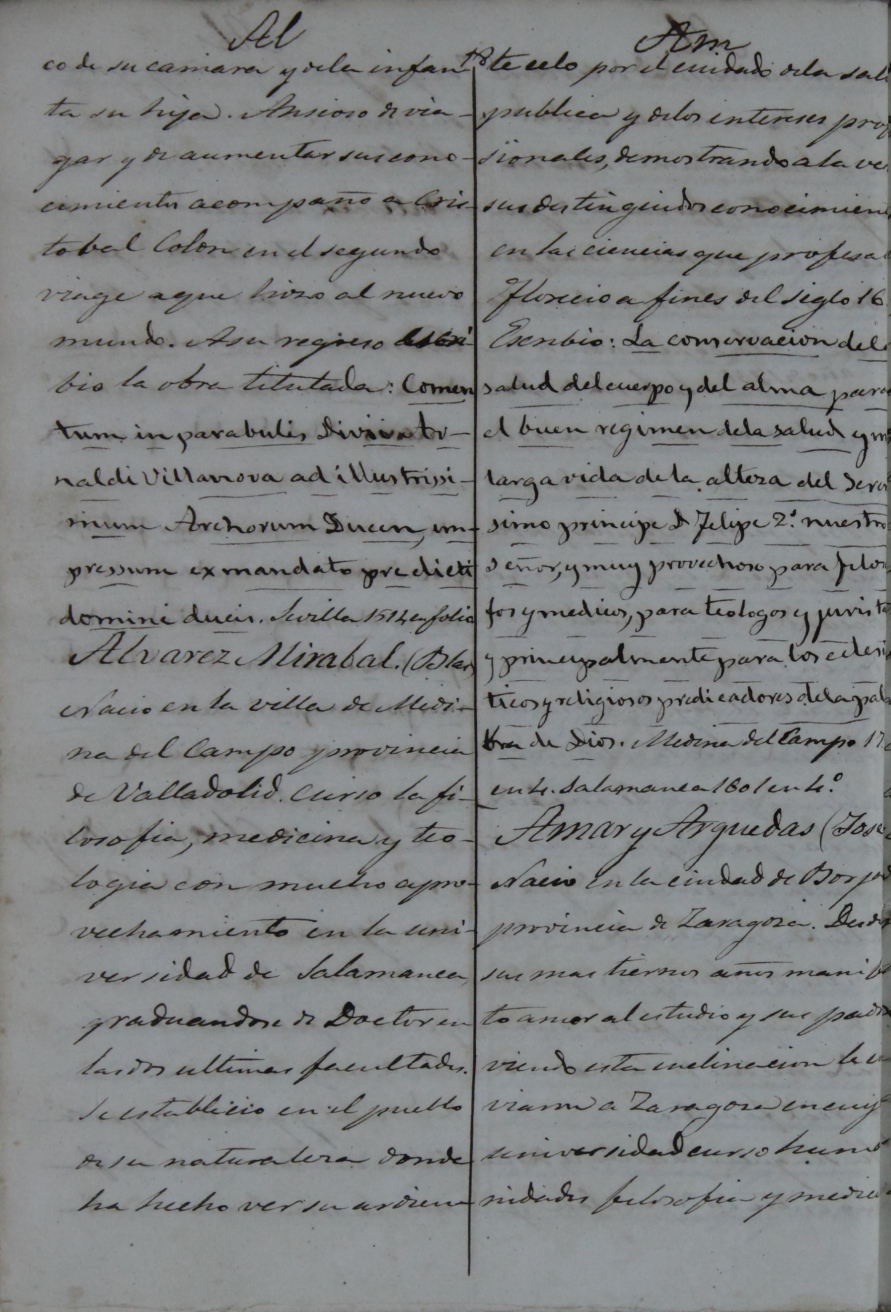 Al
co de su camara y de la infan
ta su hija. Ansioso de via-
gar y de aumentar sus cono-
cimientos acompaño a Cris-
tobal Colon en el segundo
viage que hizo al nuevo
mundo. A su regreso escri-
bio la obra titutada: Comen
tum in parabulis Divi Ar-
naldi Villanova ad illustrissi-
mum Archorum Ducen, im-
pressum ex mandato predicti
domini ducis. Sevilla 1514 en folio
Alvarez Mirabal. (Blas)
Nacio en la villa de Medi-
na del Campo y provincia
de Valladolid. Curso la fi-
losofia, medicina y teo-
logia con mucho apro-
vechamiento en la uni-
versidad de Salamanca,
graduandose de Doctor en
las dos ultimas facultades.
Se establecio en el pueblo
de su naturaleza donde
ha hecho ver su ardien
Am
te celo por el cuidado de la sal
publica y de los intereses prof
sionales, demostrando a la ve
sus distinguidos conocimien
en las ciencias que profesa
Florecio a fines del siglo 16
Escribio: La conservacion de la
salud del cuerpo y del alma para
el buen regimen de la salud y m
larga vida de la alteza del Sere
simo principe D Felipe 2º. nuestro
señor, y muy provechoso para filoso
fos y medicos, para teologos y jurista
y principalmente para los eclesi
ticos y religiosos predicadores de la pala
bra de Dios. Medina del Campo
en 4. Salamanca 1601 en 4.º
Amar y Arguedas (Jose
Nacio en la ciudad de Borja
provincia de Zaragoza. Desde
sus mas tiernos años manifes
to amor al estudio y sus padre
viendo esta inclinacion le en
viaron a Zaragoza en cuy
universidad curso huma
nidades filosofia y medici